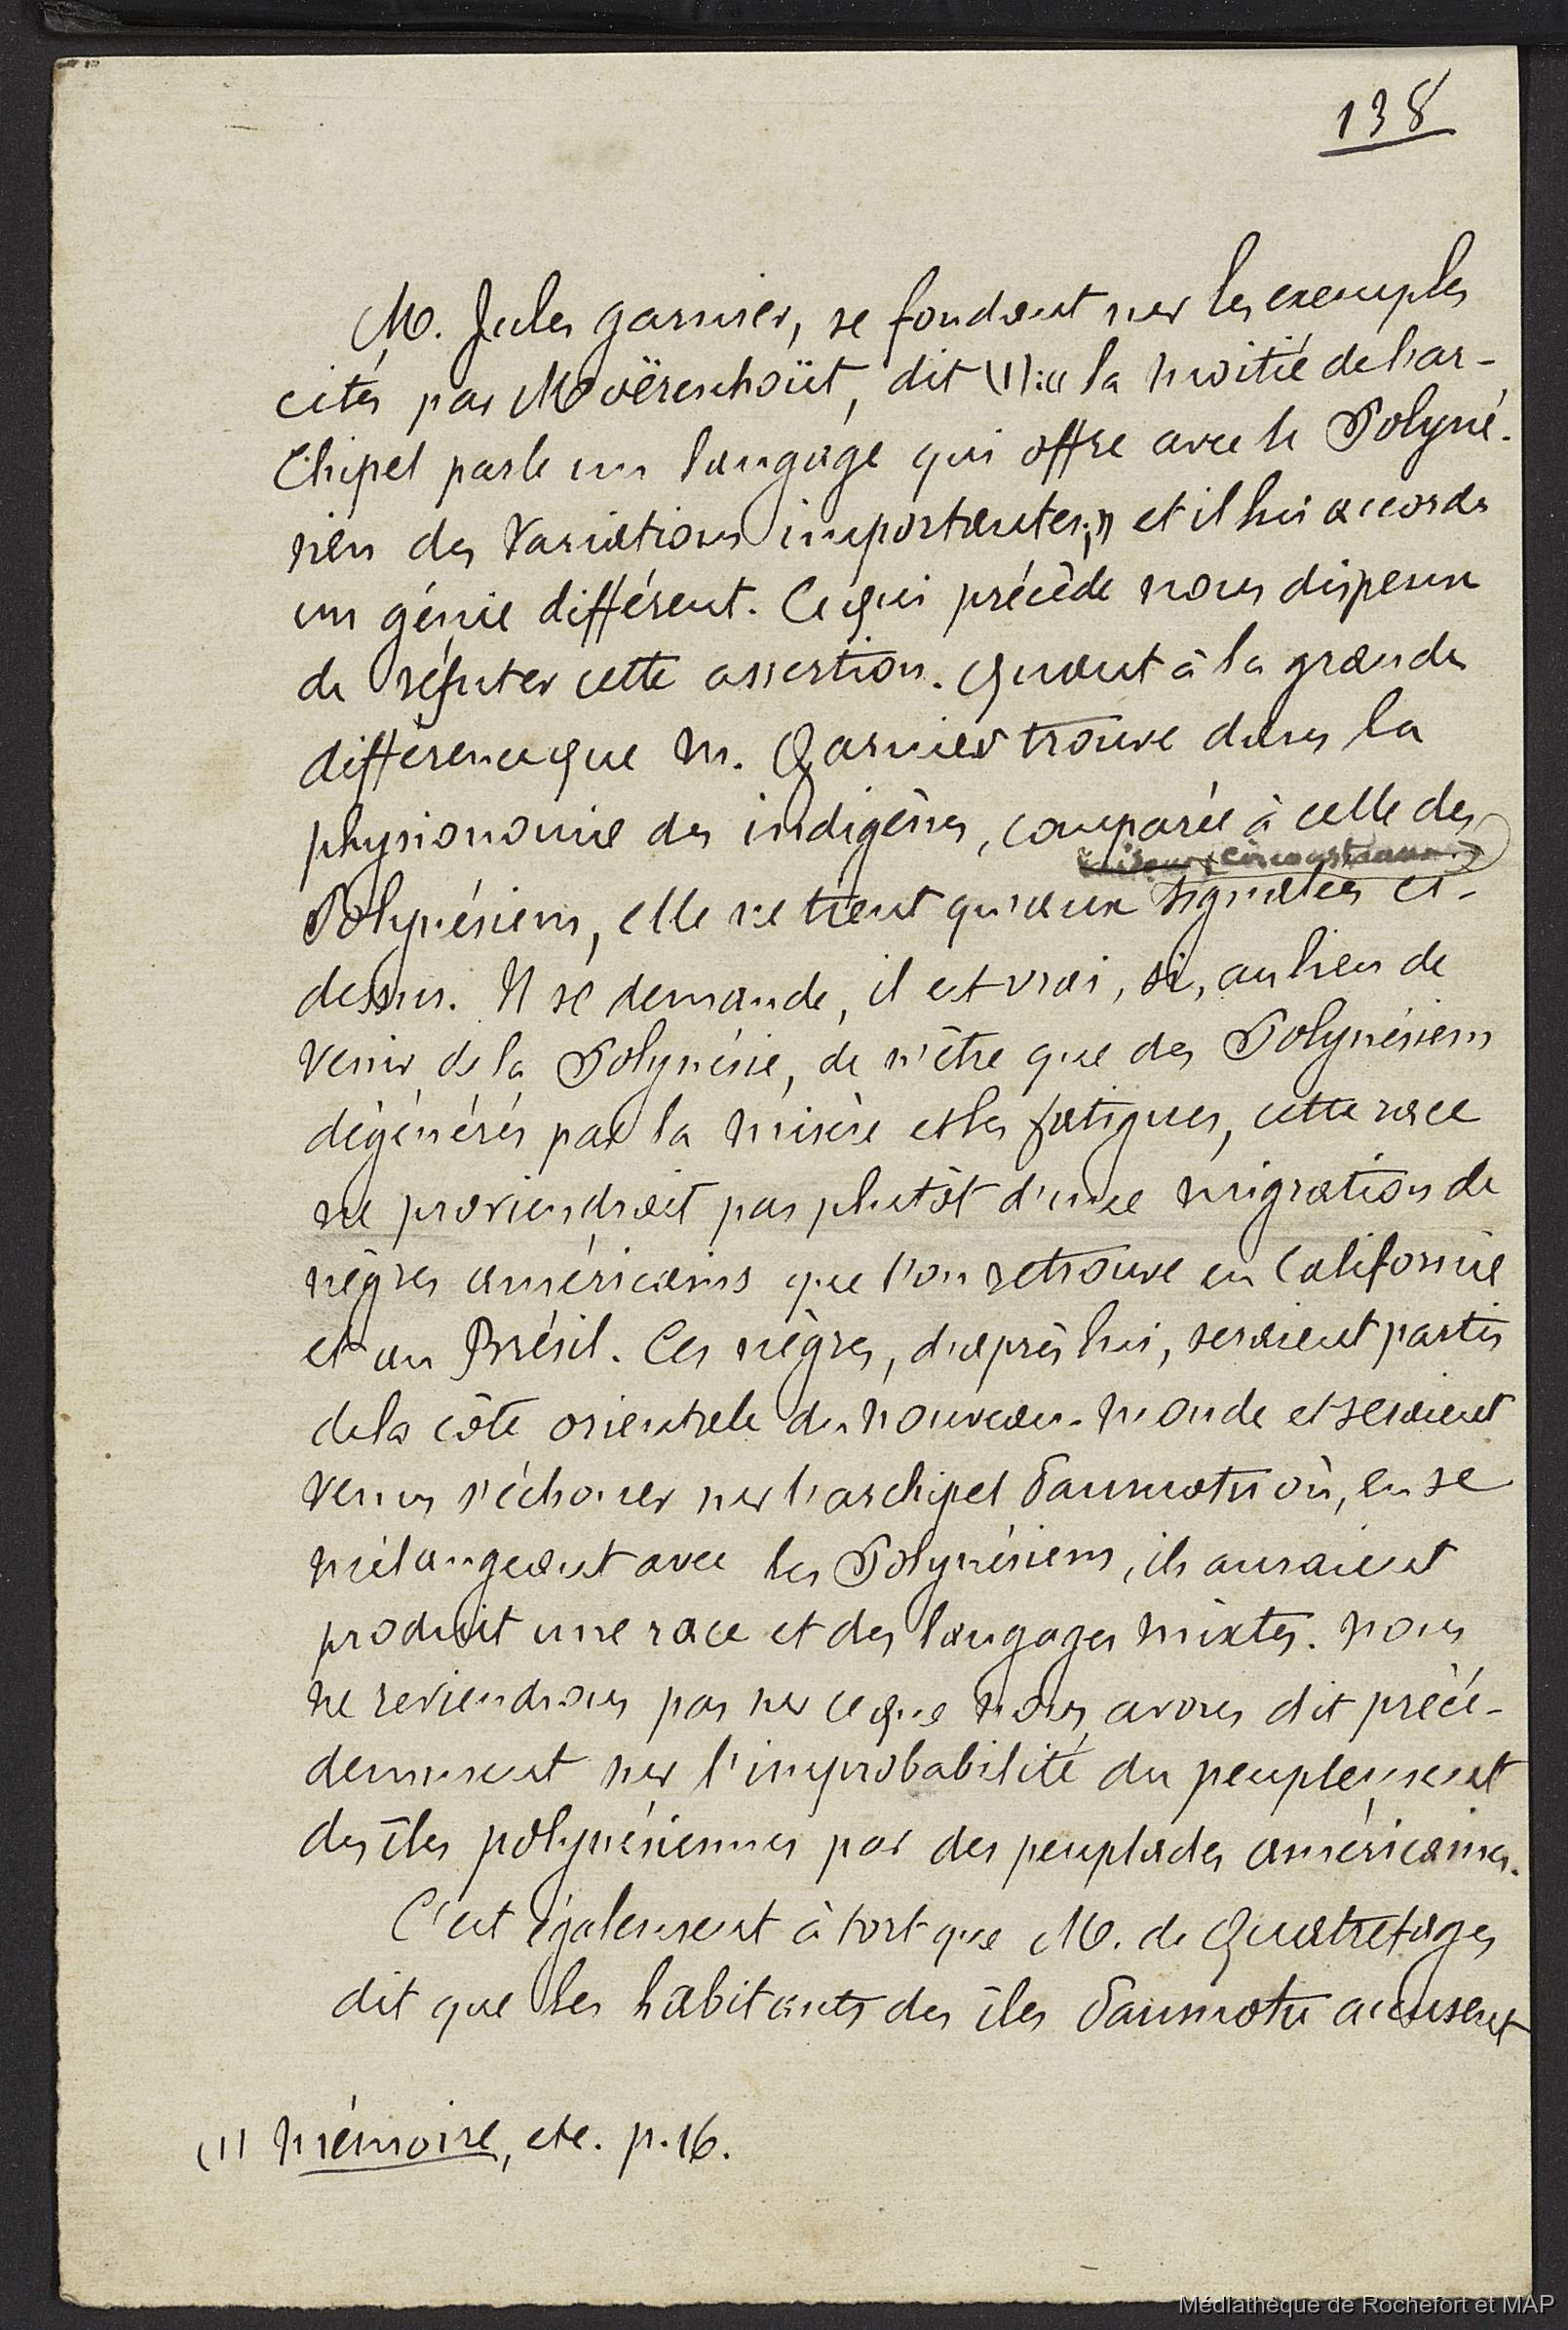 138
M. Jules Garnier, se fondant sur les exemples
cités par Moërenhoüt, dit (1): « la moitié de l'ar-
chipel parle un langage qui offre avec le Polyné-
sien des variations importantes; » et il lui accorde
un génie différent. Ce qui précède nous dispense
de réfuter cette assertion. Quant à la grande
différence que M. Garnier trouve dans la
physionomie des indigènes, comparée à celle des
circonstances
Polynésiens, elle ne tient qu'aux signalées ci-
dessus. Il se demande, il est vrai, si, au lieu de
venir de la Polynésie, de n'être que des Polynésiens
dégénérés par la misère et les fatigues, cette race
ne proviendrait pas plutôt d'une migration de
nègres américains que l'on retrouve en Californie
et au Brésil. Ces nègres, d'après lui, seraient partis
de la côte orientale du nouveau-monde et seraient
venus s'échouer sur l'archipel Paumotu où, en se
mélangeant avec les Polynésiens, ils auraient
produit une race et des langages mixtes. Nous
ne reviendrons pas sur ce que nous avons dit précé-
demment sur l'improbabilité du peuplement
des îles polynésiennes par des peuplades américaines.
C'est également à tort que M. de Quatrefages
dit que les habitants des îles Paumotu accusent
(1) Mémoire, etc. p. 16.
Médiathèque de Rochefort et MAP